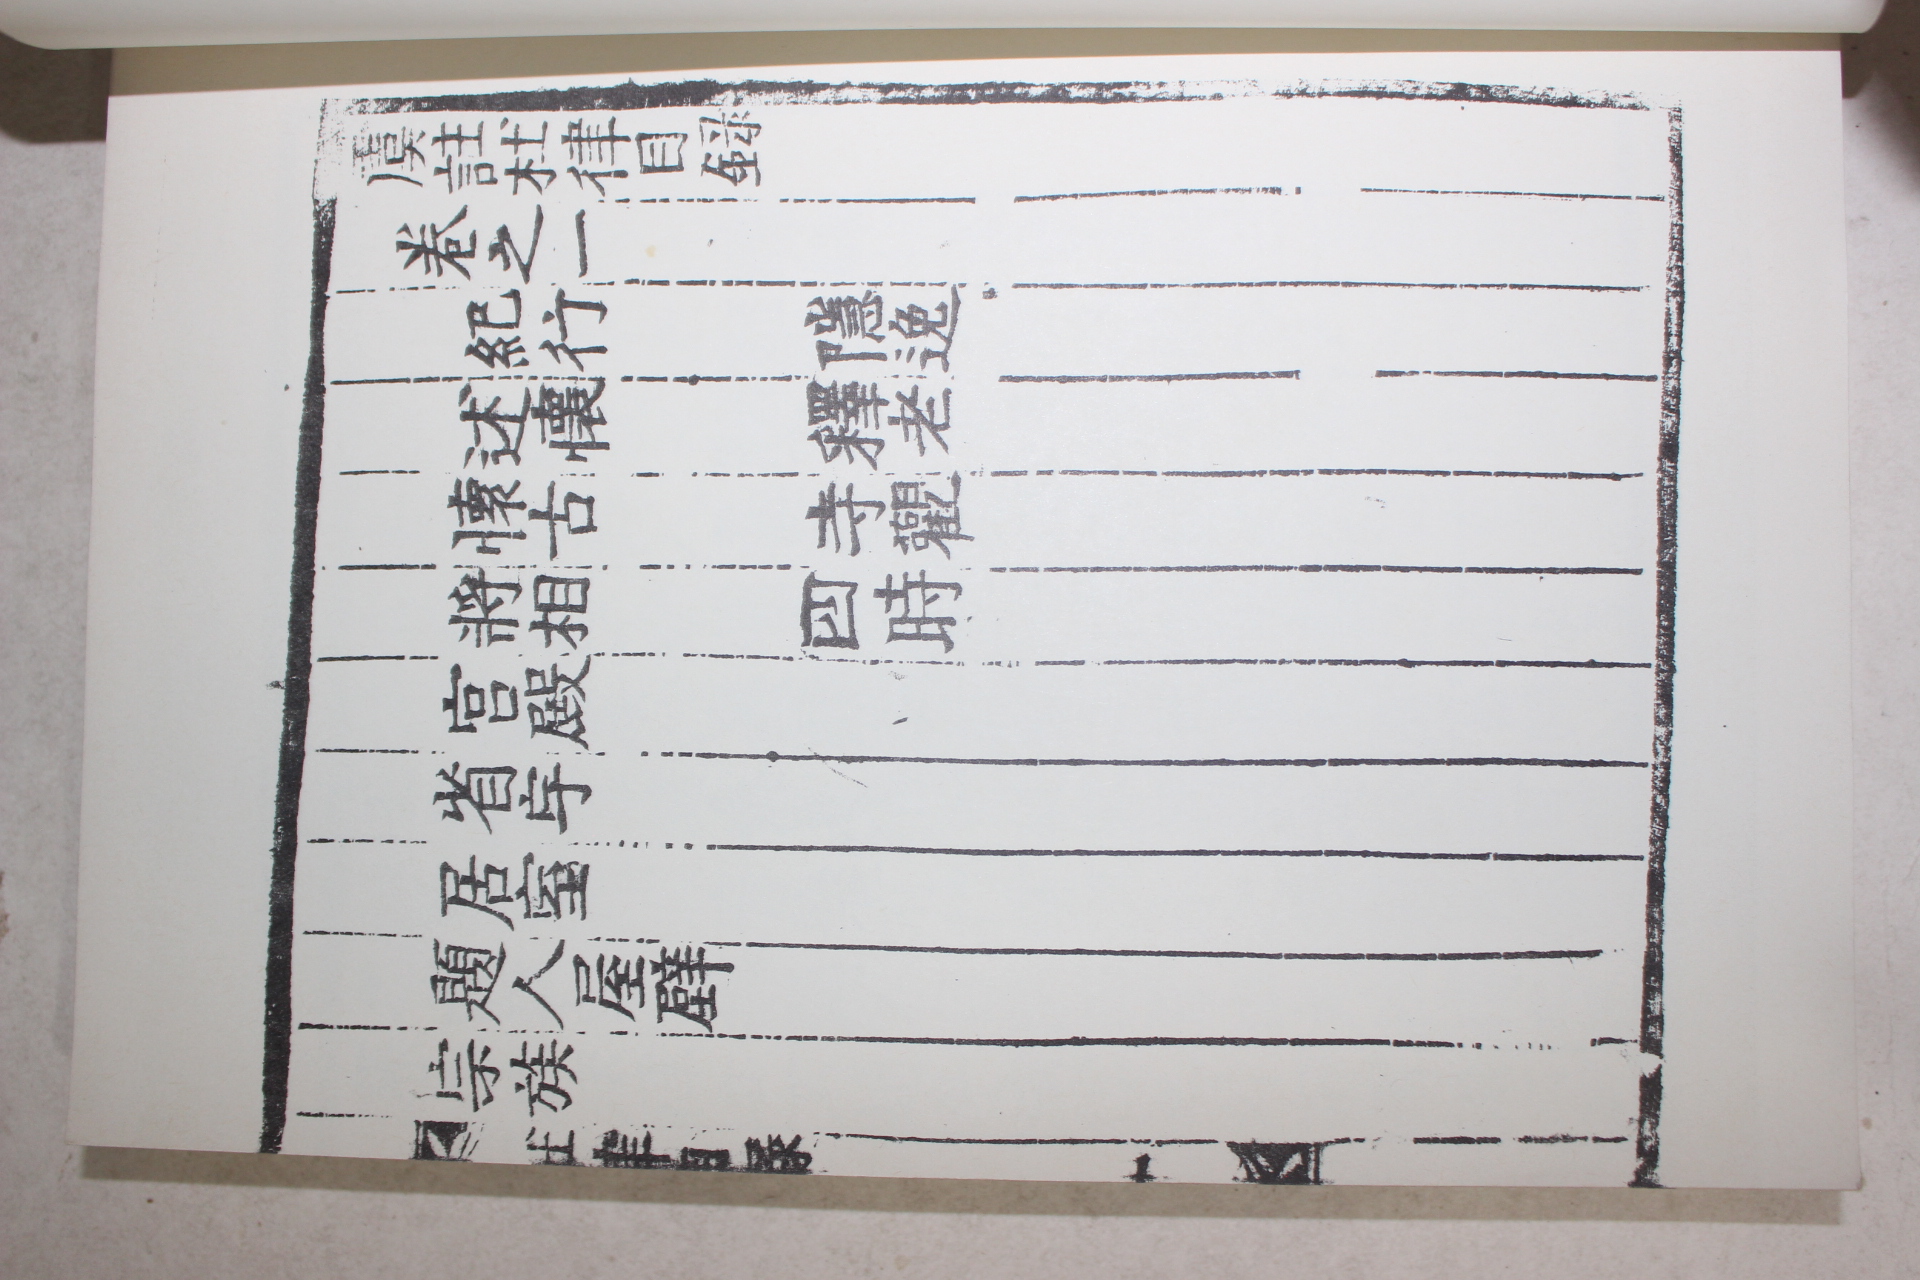 虞註杜律目錄
卷之一
紀行　隱逸
述懷　釋老
懷古　寺觀
將相　四時
宮殿
省宇
居室
題人屋壁
宗族
杜律目錄